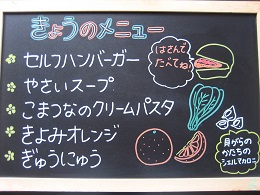 きょうのメニュー
セルフハンバーガー
はさんで
たべてね!
やさいスープ
こまつなのクリームパスタ
きよみオレンジ
ぎゅうにゅう
貝がらの
かたちの
シェルマカロニ